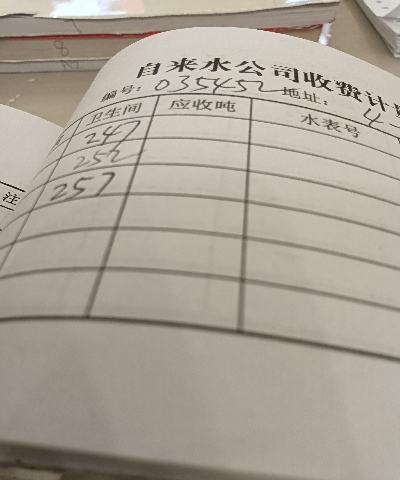 自来水公司收费计
编号: 035452 地址: 4-
卫生间 应收吨 水表号
247
252
257
注